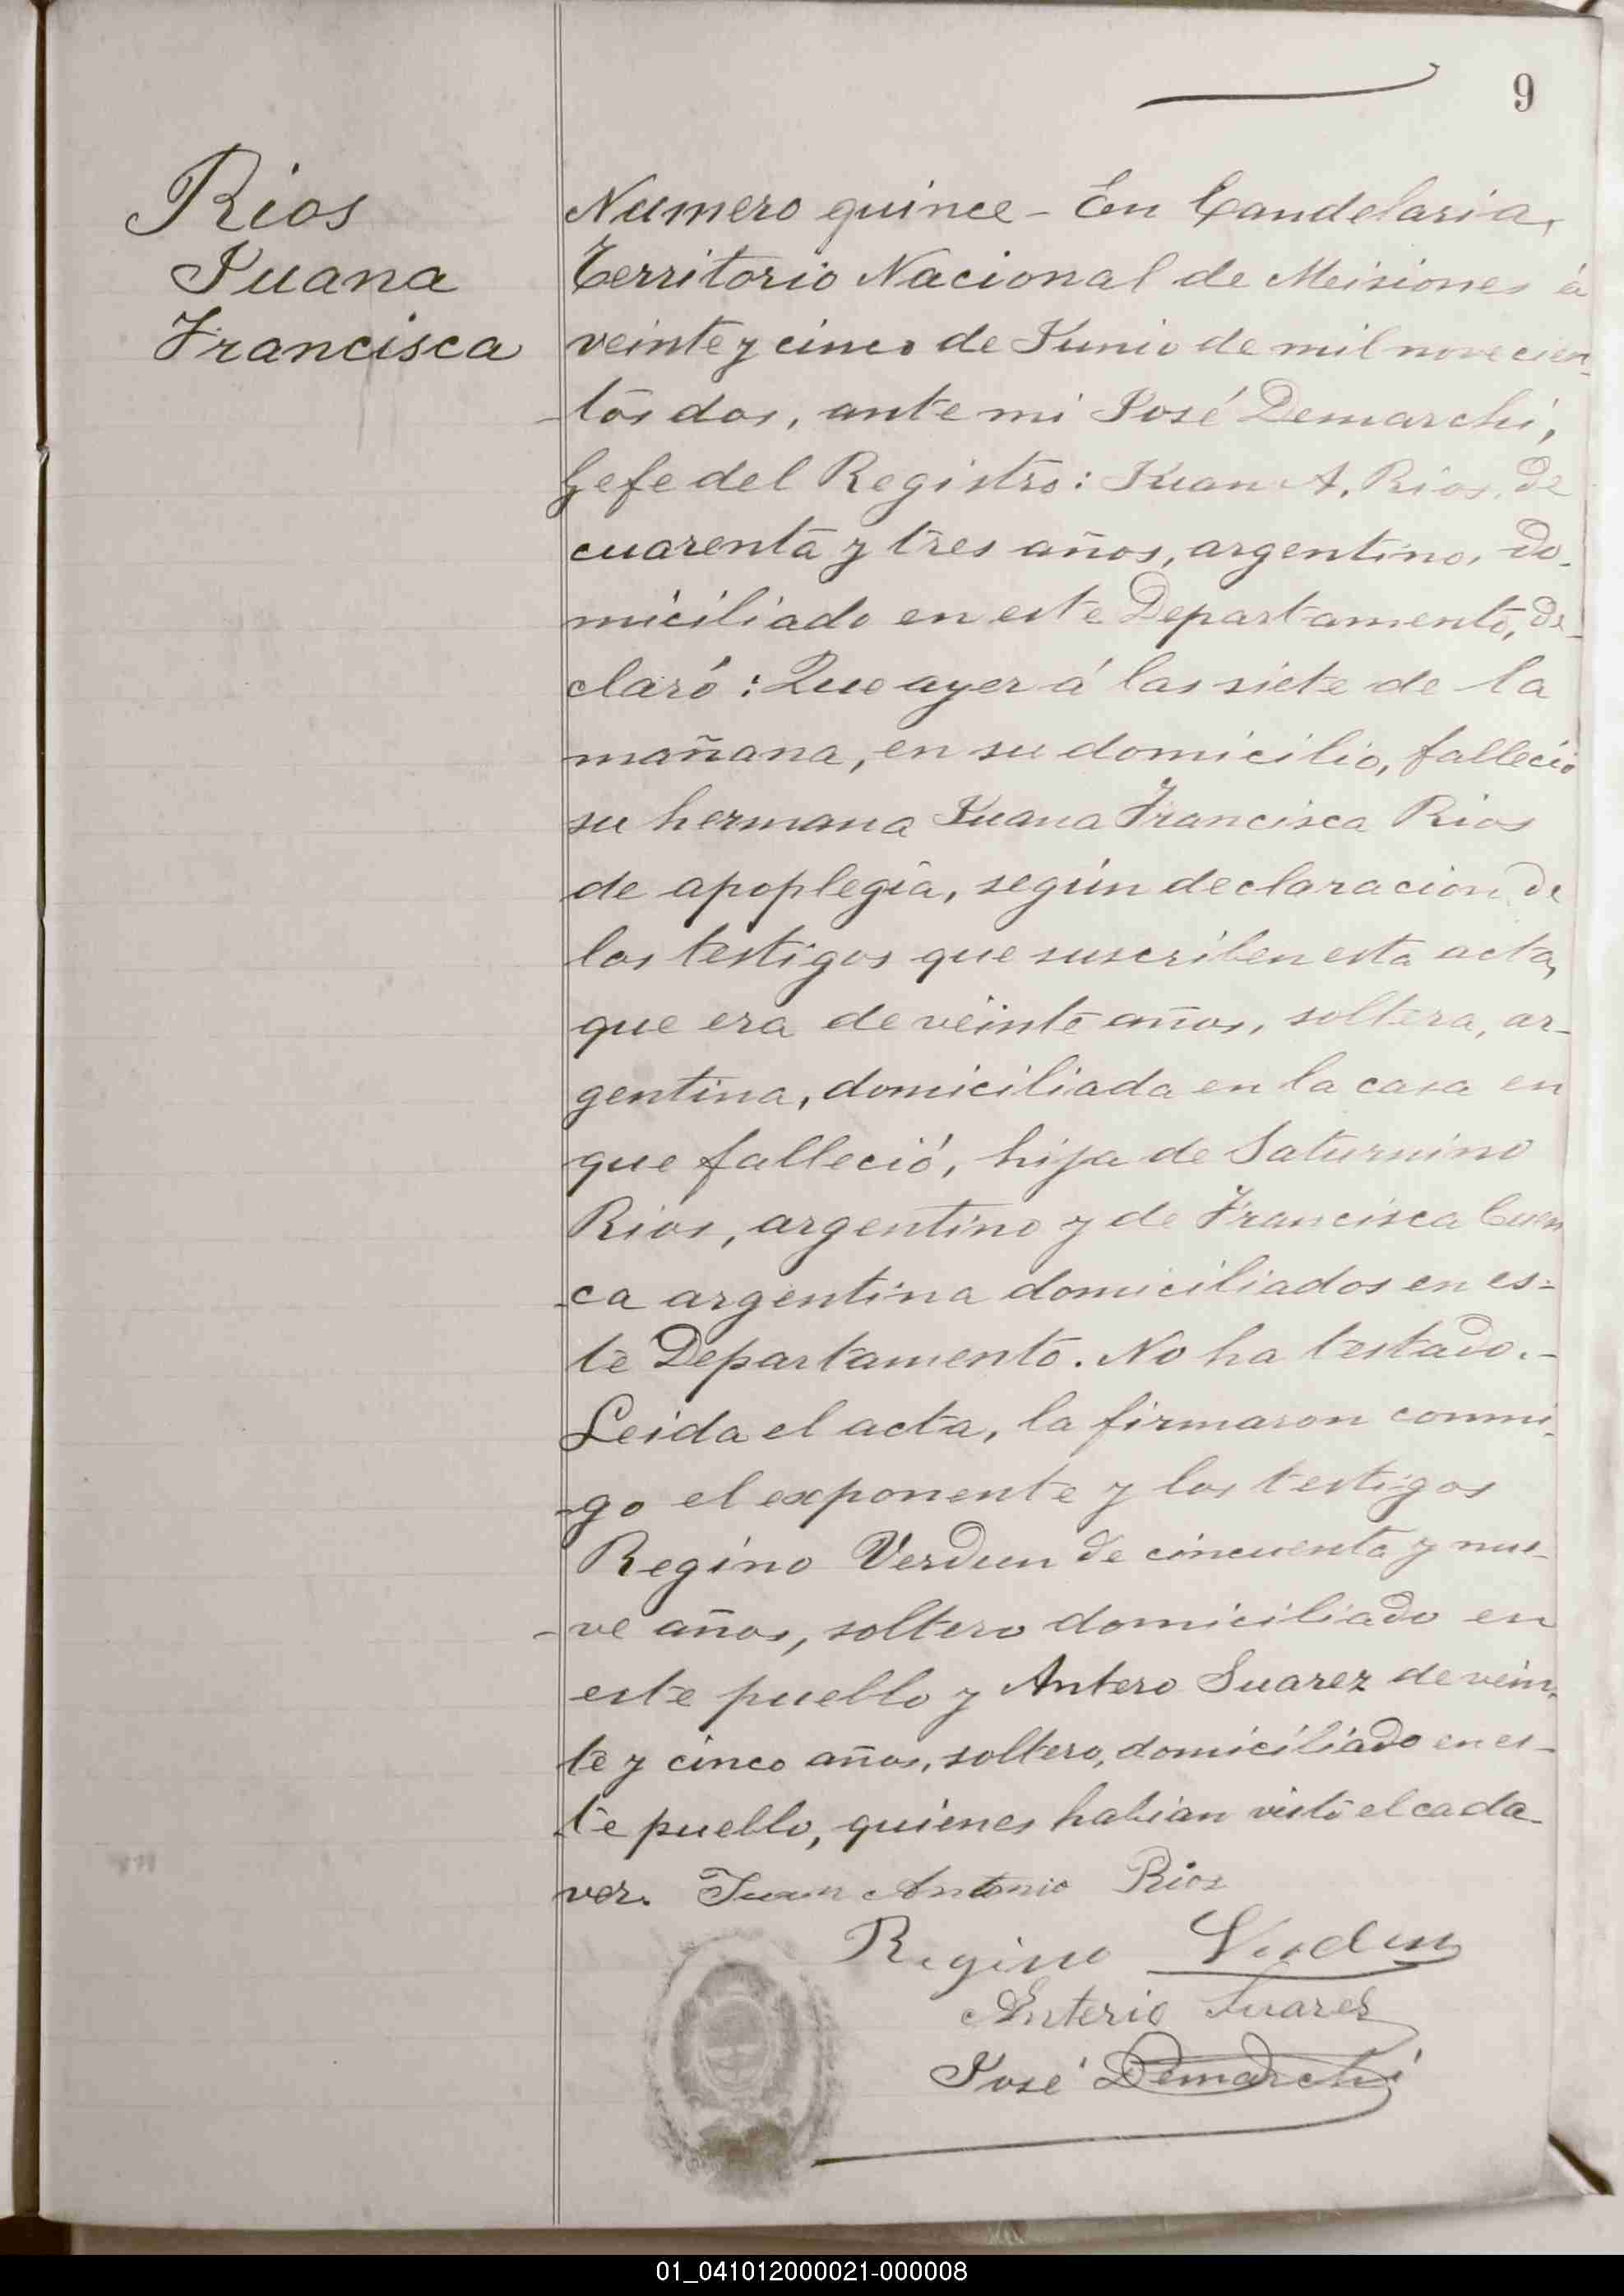 9
Rios
Juana
Francisca
Numero quince - En Candelaria,
Territorio Nacional de Misiones á
veinte y cinco de Junio de mil novecien-
-tos dos, ante mi José Demarchi,
Gefe del Registro: Juan A. Rios, de
cuarenta y tres años, argentino, do-
miciliado en este Departamento, de-
claró: Que ayer á las siete de la
mañana, en su domicilio, falleció
su hermana Juana Francisca Rios
de apoplegia, según declaracion de
los testigos que suscriben esta acta,
que era de veinte años, soltera, ar-
gentina, domiciliada en la casa en
que falleció, hija de Saturnino
Rios, argentino y de Francisca Cuen
-ca argentina domiciliados en es-
te Departamento. No ha testado.-
Leida el acta, la firmaron conmi-
-go el exponente y los testigos
Regino Verdun de cincuenta y nue-
-ve años, soltero domiciliado en
este pueblo y Antero Suarez de vein-
te y cinco años, soltero, domiciliado en es-
-te pueblo, quienes habian visto el cada-
ver. Juan Antonio Rios
Regino Verdun
Anterio Suares
José Demarchi
01_041012000021-000008